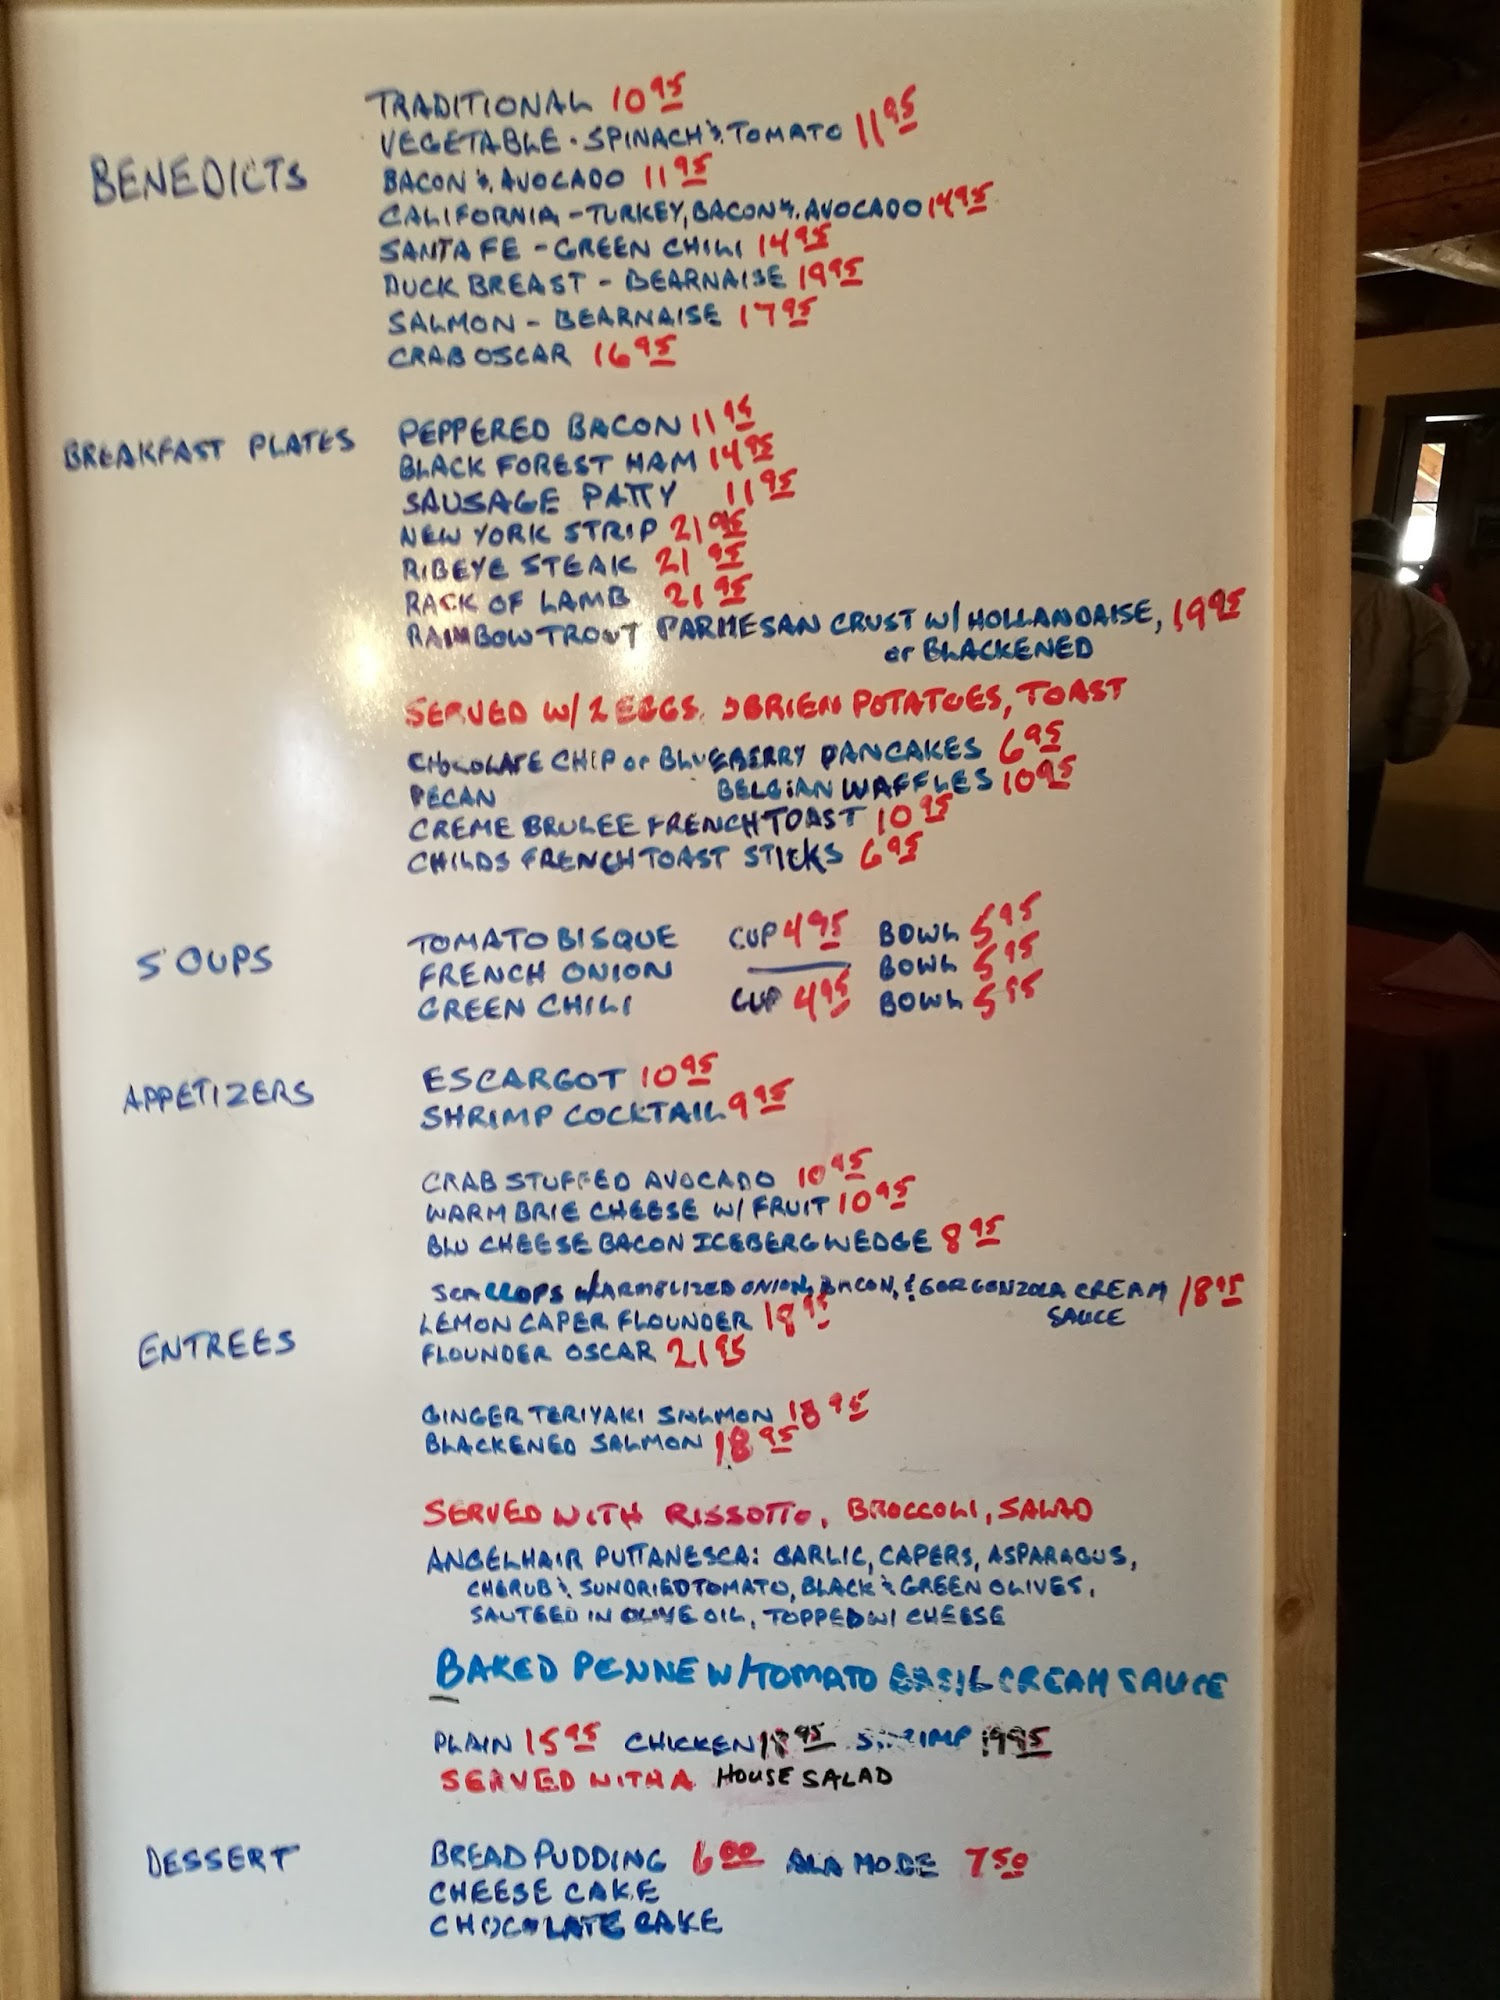 BENEDICTS
TRADITIONAL 10 95
VEGETABLE - SPINACH & TOMATO 11 95
BACON & AVOCADO 11 95
CALIFORNIA - TURKEY, BACON & AVOCADO 14 95
SANTA FE - GREEN CHILI 14 95
DUCK BREAST - BEARNAISE 19 95
SALMON - BEARNAISE 17 95
CRAB OSCAR 16 95
BREAKFAST PLATES
PEPPERED BACON 11 95
BLACK FOREST HAM 14 95
SAUSAGE PATTY 11 95
NEW YORK STRIP 21 95
RIBEYE STEAK 21 95
RACK OF LAMB 21 95
RAINBOW TROUT PARMESAN CRUST W/ HOLLANDAISE, 19 95
or BLACKENED
SERVED W/ 2 EGGS, OBRIEN POTATOES, TOAST
CHOCOLATE CHIP or BLUEBERRY PANCAKES 6 95
PECAN BELGIAN WAFFLES 10 95
CREME BRULEE FRENCH TOAST 10 95
CHILDS FRENCH TOAST STICKS 6 95
SOUPS
TOMATO BISQUE CUP 4 95 BOWL 5 95
FRENCH ONION BOWL 5 95
GREEN CHILI CUP 4 95 BOWL 5 95
APPETIZERS
ESCARGOT 10 95
SHRIMP COCKTAIL 9 95
CRAB STUFFED AVOCADO 10 95
WARM BRIE CHEESE W/ FRUIT 10 95
BLU CHEESE BACON ICEBERG WEDGE 8 95
ENTREES
SCALLOPS w/CARMELIZED ONION, BACON, & GORGONZOLA CREAM 18 95
SAUCE
LEMON CAPER FLOUNDER 18 95
FLOUNDER OSCAR 21 95
GINGER TERIYAKI SALMON 18 95
BLACKENED SALMON 18 95
SERVED WITH RISSOTTO, BROCCOLI, SALAD
ANGELHAIR PUTTANESCA: GARLIC, CAPERS, ASPARAGUS,
CHERUB & SUNDRIED TOMATO, BLACK & GREEN OLIVES,
SAUTEED IN OLIVE OIL, TOPPED W/ CHEESE
BAKED PENNE W/TOMATO BASIL CREAM SAUCE
PLAIN 15 95 CHICKEN 18 95 SHRIMP 19 95
SERVED WITH A HOUSE SALAD
DESSERT
BREAD PUDDING 6 00 ALA MODE 7 50
CHEESE CAKE
CHOCOLATE CAKE